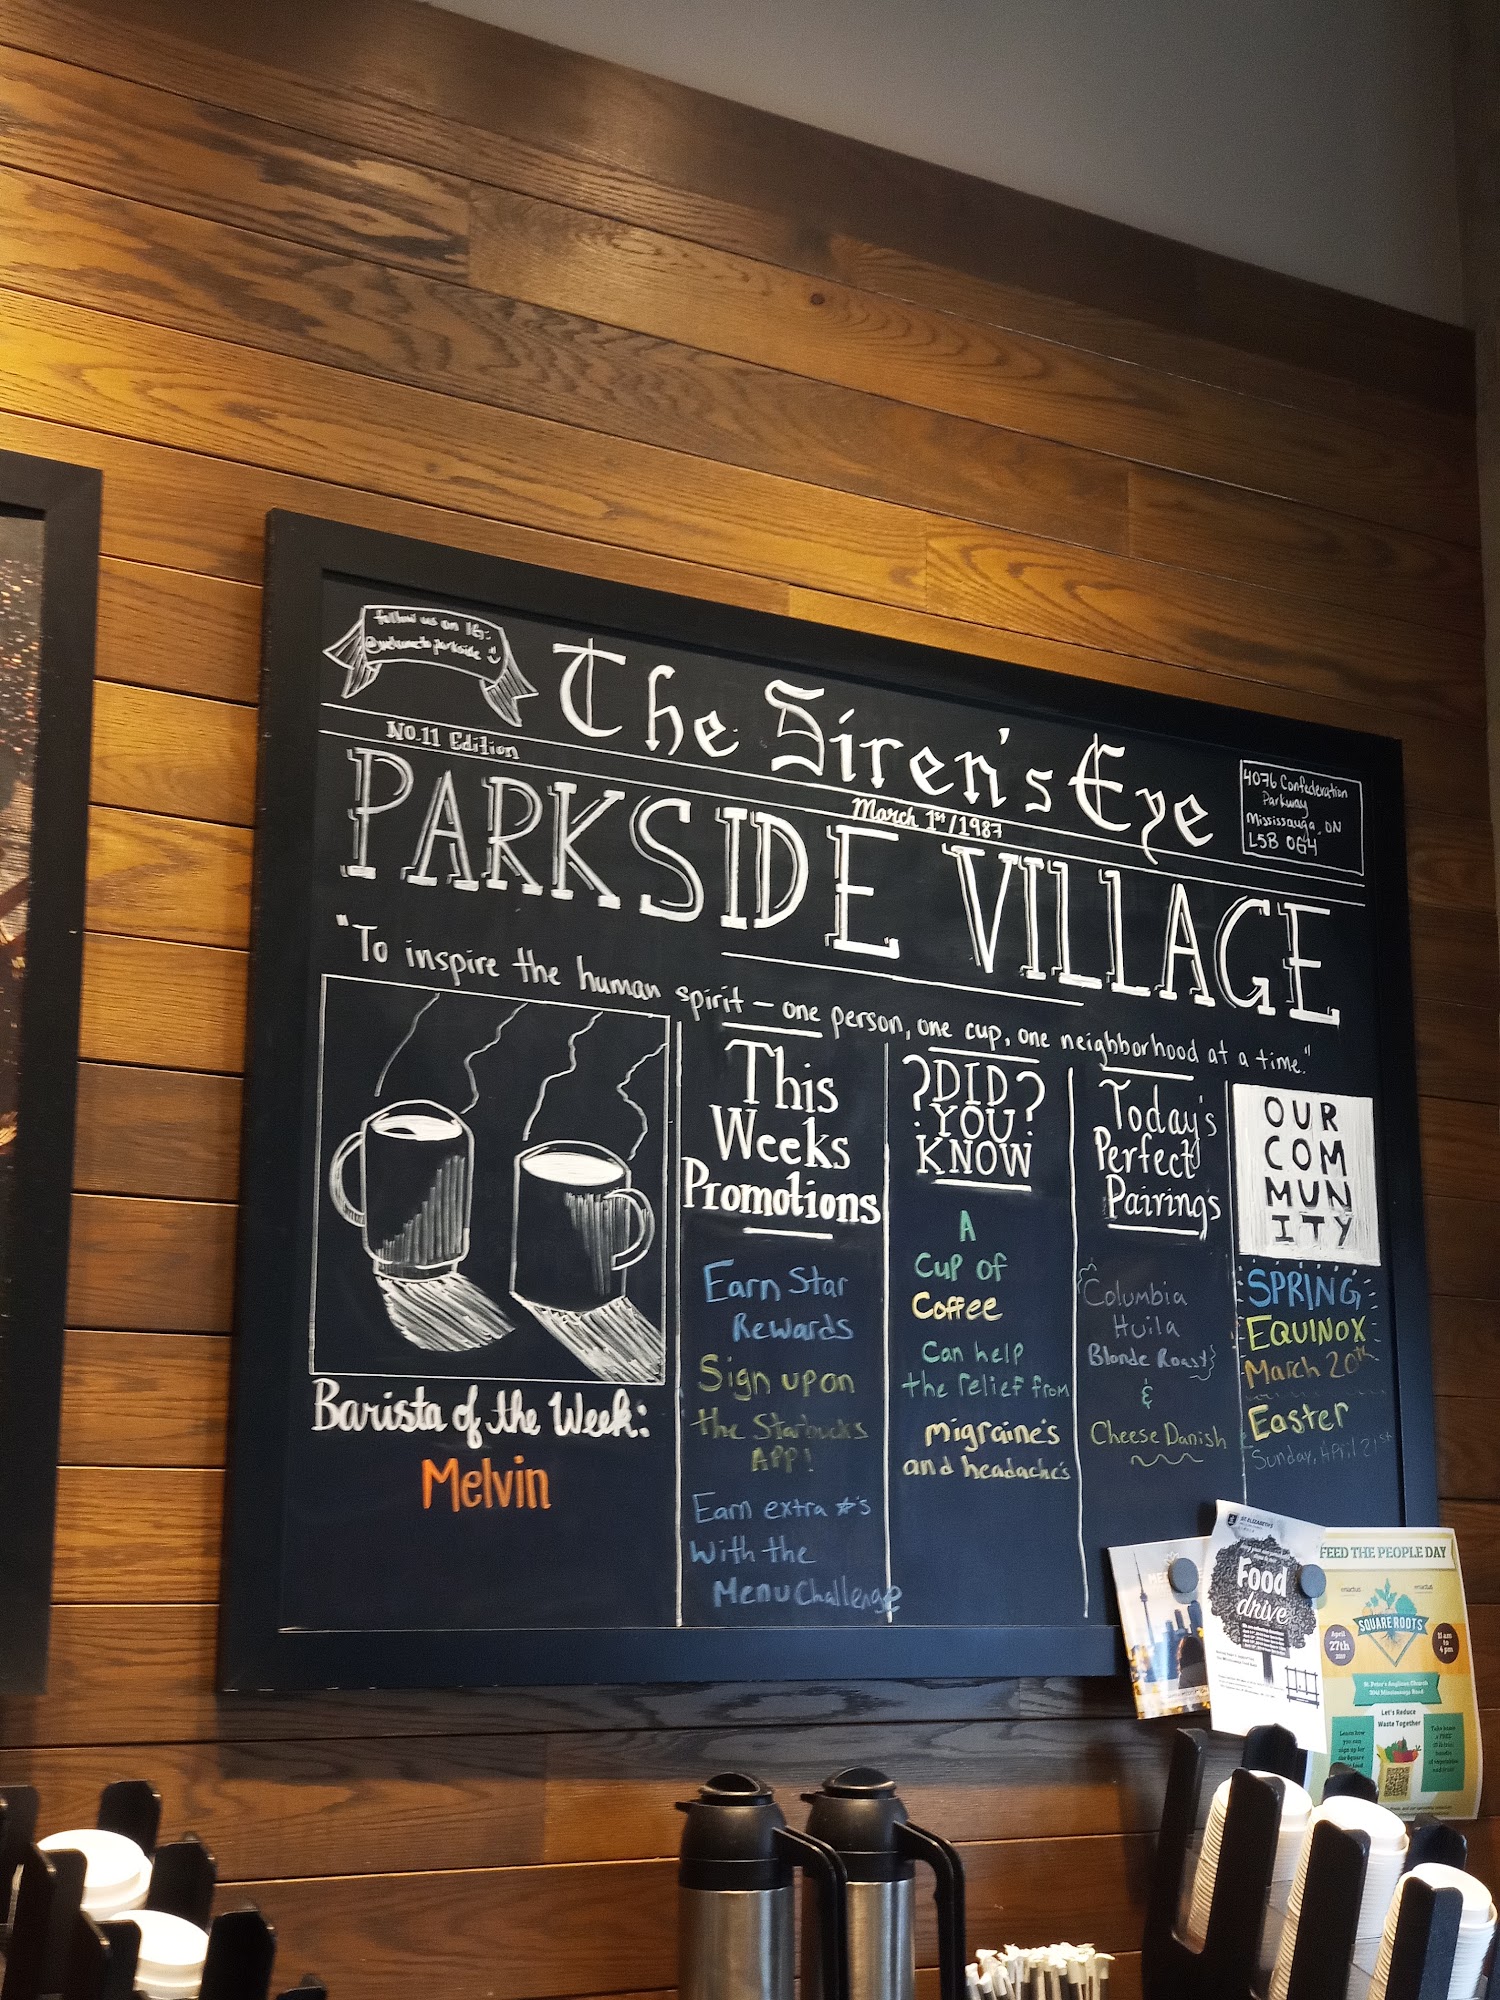 follow us on IG:
@welcometoparkside :)
The Siren's Eye
No.11 Edition
March 1st/1987
4076 Confederation
Parkway
Mississauga, ON
L5B 0G4
PARKSIDE VILLAGE
"To inspire the human spirit – one person, one cup, one neighborhood at a time."
Barista of the Week:
Melvin
This
Weeks
Promotions
Earn Star
Rewards
Sign upon
the Starbucks
APP!
Earn extra ☆'s
With the
Menu Challenge
?DID?
YOU
KNOW
A
Cup of
Coffee
Can help
the relief from
migraine's
and headache's
Today's
Perfect
Pairings
Columbia
Huila
Blonde Roast
&
Cheese Danish
OUR
COM
MUN
ITY
SPRING
EQUINOX
March 20th
Easter
Sunday, April 21st
ST. ELIZABETH'S
Food
drive
FEED THE PEOPLE DAY
enactus
enactus
SQUARE ROOTS
April
27th
2019
11 am
to
4 pm
St. Peter's Anglican Church
Let's Reduce
Waste Together
Learn how
you can
sign up for